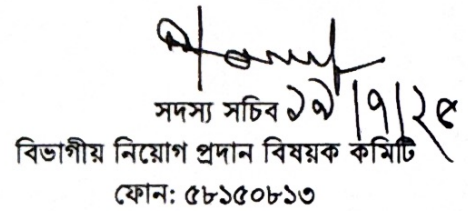 সদস্য সচিব
বিভাগীয় নিয়োগ প্রদান বিষয়ক কমিটি
ফোন: ৫৮১৫০৮১৩